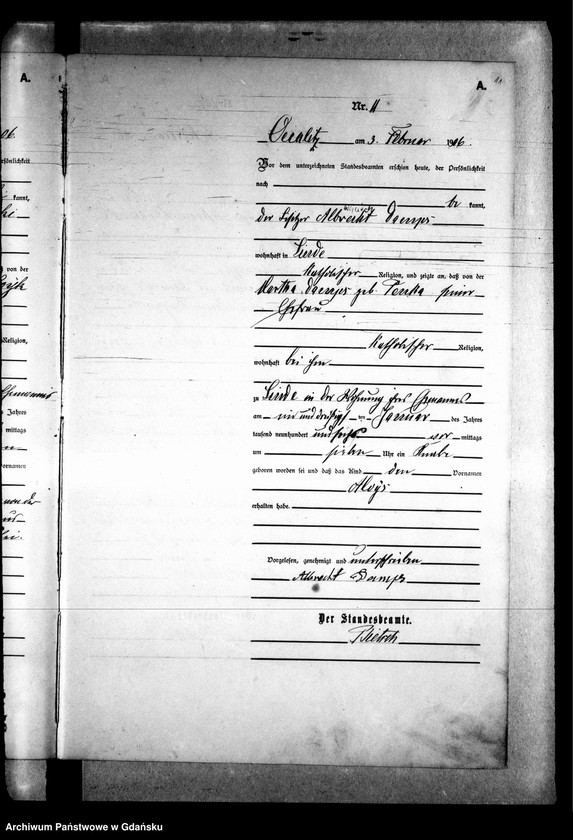 A.
A.
Nr. 11
am 3. Februar 1906.
Vor dem unterzeichneten Standesbeamten erschien heute, der Persönlichkeit
nach
be kannt,
der Besitzer Albrecht Damps
wohnhaft in Linde
katholischer Religion, und zeigte an, daß von der
Martha Damps geb. seiner
Ehefrau
katholischer Religion,
wohnhaft bei ihm
zu Linde in der Wohnung ihres Ehemannes
am ein und dreißigsten Januar des Jahres
tausend neunhundert und sechs vor mittags
um sieben Uhr ein Knabe
geboren worden sei und daß das Kind den Vornamen
Aloys
erhalten habe.
Vorgelesen, genehmigt und unterschrieben
Albrecht Damps
Der Standesbeamte.
06.
rsönlichkeit
kannt,
ß von der
Religion,
Ehemannes
Jahres
mittags
ornamen
von der
Archiwum Państwowe w Gdańsku